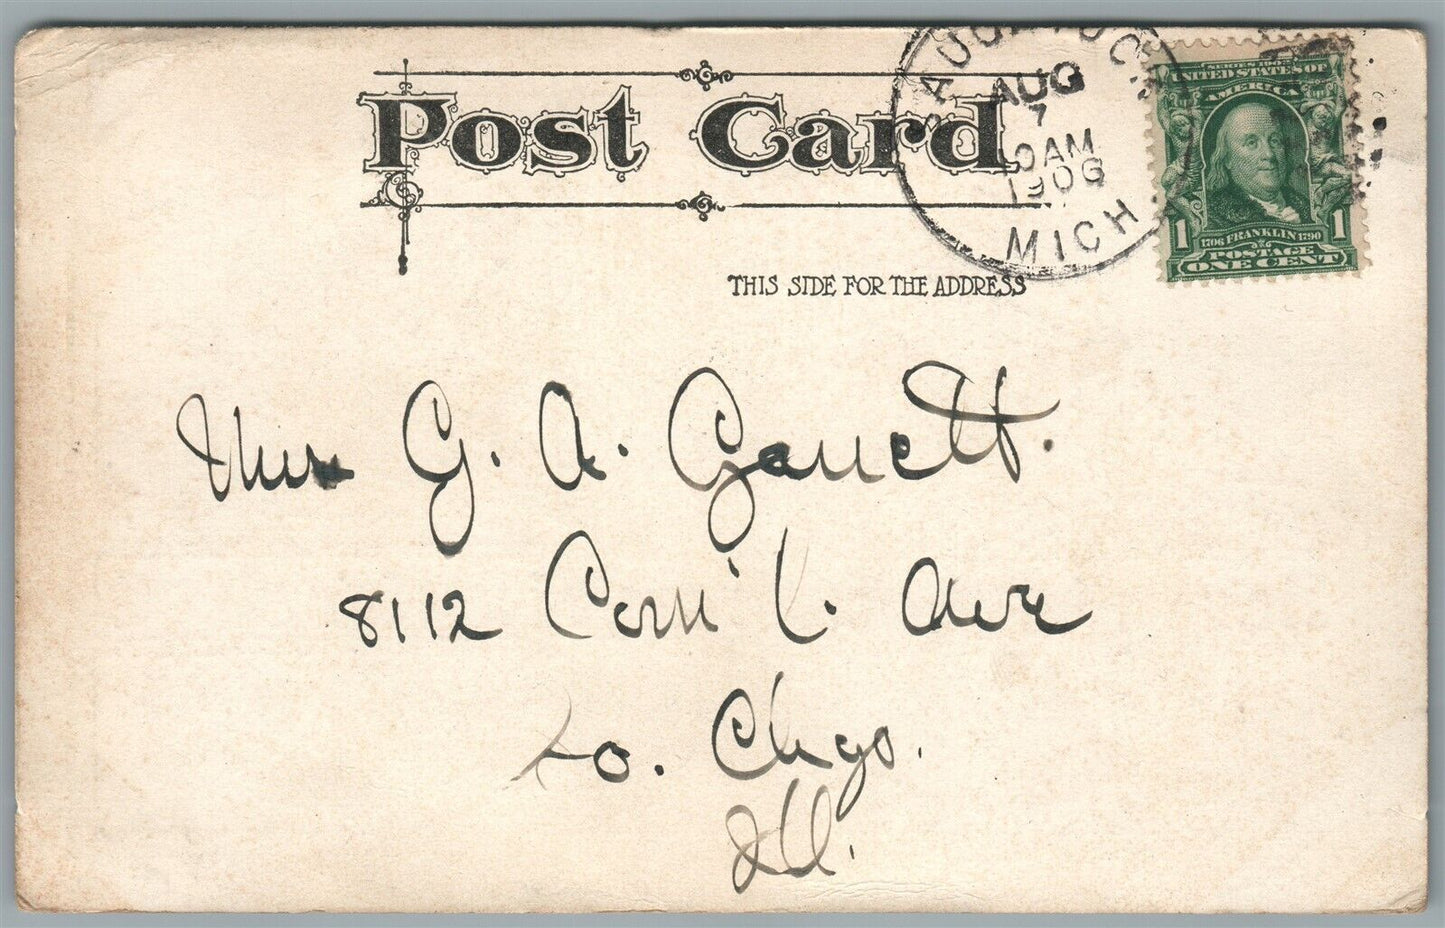 Post Card
SAUGATUCK
AUG
7
10AM
1906
MICH.
SERIES 1902
UNITED STATES OF
AMERICA
1 1706 FRANKLIN 1790 1
POSTAGE
ONE CENT
THIS SIDE FOR THE ADDRESS
Mrs G. A. Garrett.
8112 Com'l. Ave
So. Chgo.
Ill.